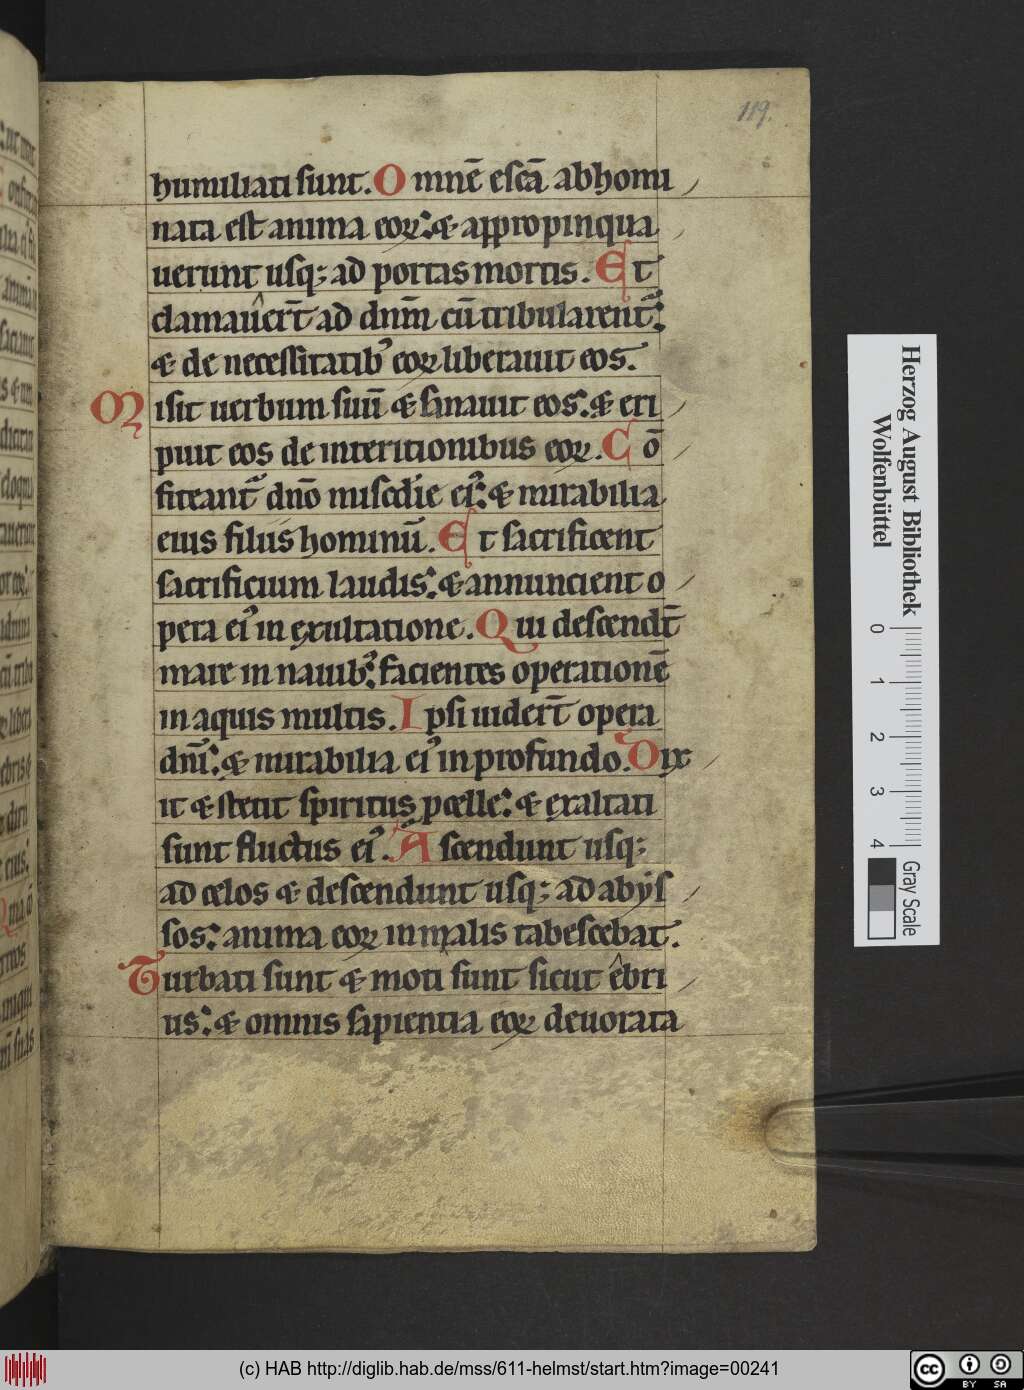 119.
humiliati sunt. O mnē escā abhomi
nata est anima eoꝝ: & appropinqua
uerunt usq; ad portas mortis. E t
clamauert̄ ad dnm̄ cū tribularent᷑:
& de necessitatib᾽ eoꝝ liberauit eos.
M isit uerbum suū & sanauit eos: & eri
puit eos de interitionibus eoꝝ. C ō
fiteant᷑ dnō misc̄die ei᾽: & mirabilia
eius filiis hominū. E t sacrificent
sacrificium laudis: & annuncient o
pera ei᾽ in exultatione. Q ui descendt̄
mare in nauib᾽: facientes operationē
in aquis multis. I psi uidert̄ opera
dnī: & mirabilia ei᾽ in profundo. D ix
it & stetit spiritus pcelle: & exaltati
sunt fluctus ei᾽. A scendunt usq;
ad celos & descendunt usq; ad abys
sos: anima eoꝝ in malis tabescebat.
T urbati sunt & moti sunt sicut ebri
us: & omnis sapientia eoꝝ deuorata
Herzog August Bibliothek
Wolfenbüttel
0 1 2 3 4
Gray Scale
(c) HAB http://diglib.hab.de/mss/611-helmst/start.htm?image=00241
cc BY SA